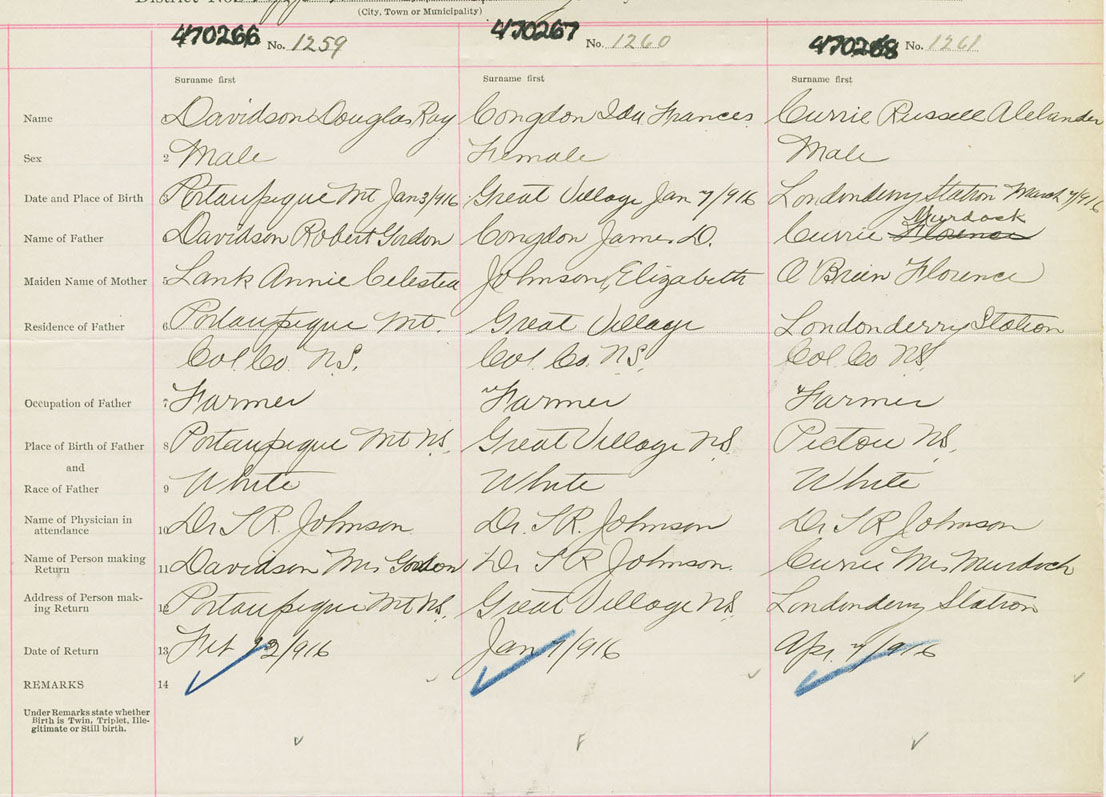 (City, Town or Municipality)
470266 No. 1259 470267 No. 1260 470268 No. 1261
Surname first Surname first Surname first
Name Davidson Douglas Ray Congdon Ida Frances Currie Russell Alexander
Sex 2 Male Female Male
Date and Place of Birth 3 Portaupique Mt Jan 3/916 Great Village Jan 7/916 Londonderry Station March 7/916
Murdock
Name of Father Davidson Robert Gordon Congdon James D. Currie Florence
Maiden Name of Mother 5 Lank Annie Celestea Johnson, Elizabeth O'Brien Florence
Residence of Father 6 Portaupique Mt. Great Village Londonderry Station
Col. Co. N.S. Col. Co. N.S. Col. Co N.S.
Occupation of Father 7 Farmer Farmer Farmer
Place of Birth of Father 8 Portaupique Mt N.S. Great Village N.S. Pictou N.S.
and
Race of Father 9 White White White
Name of Physician in attendance 10 Dr T.R. Johnson Dr. T.R. Johnson Dr T R Johnson
Name of Person making Return 11 Davidson Mrs Gordon Dr T R Johnson. Currie Mrs Murdoch
Address of Person making Return 12 Portaupique Mt N.S. Great Village N.S. Londonderry Station
Date of Return 13 Feb /916 Jan 7/916 Apr. 7/916
REMARKS 14
Under Remarks state whether
Birth is Twin, Triplet, Ille-
gitimate or Still birth.